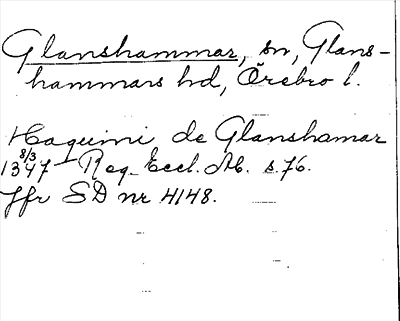 Glanshammar, sn, Glans-
hammars hd, Örebro l.
Haquini de Glanshamar
1347 8/3 Reg. Eccl. Ab. s. 76.
Jfr SD nr 4148.